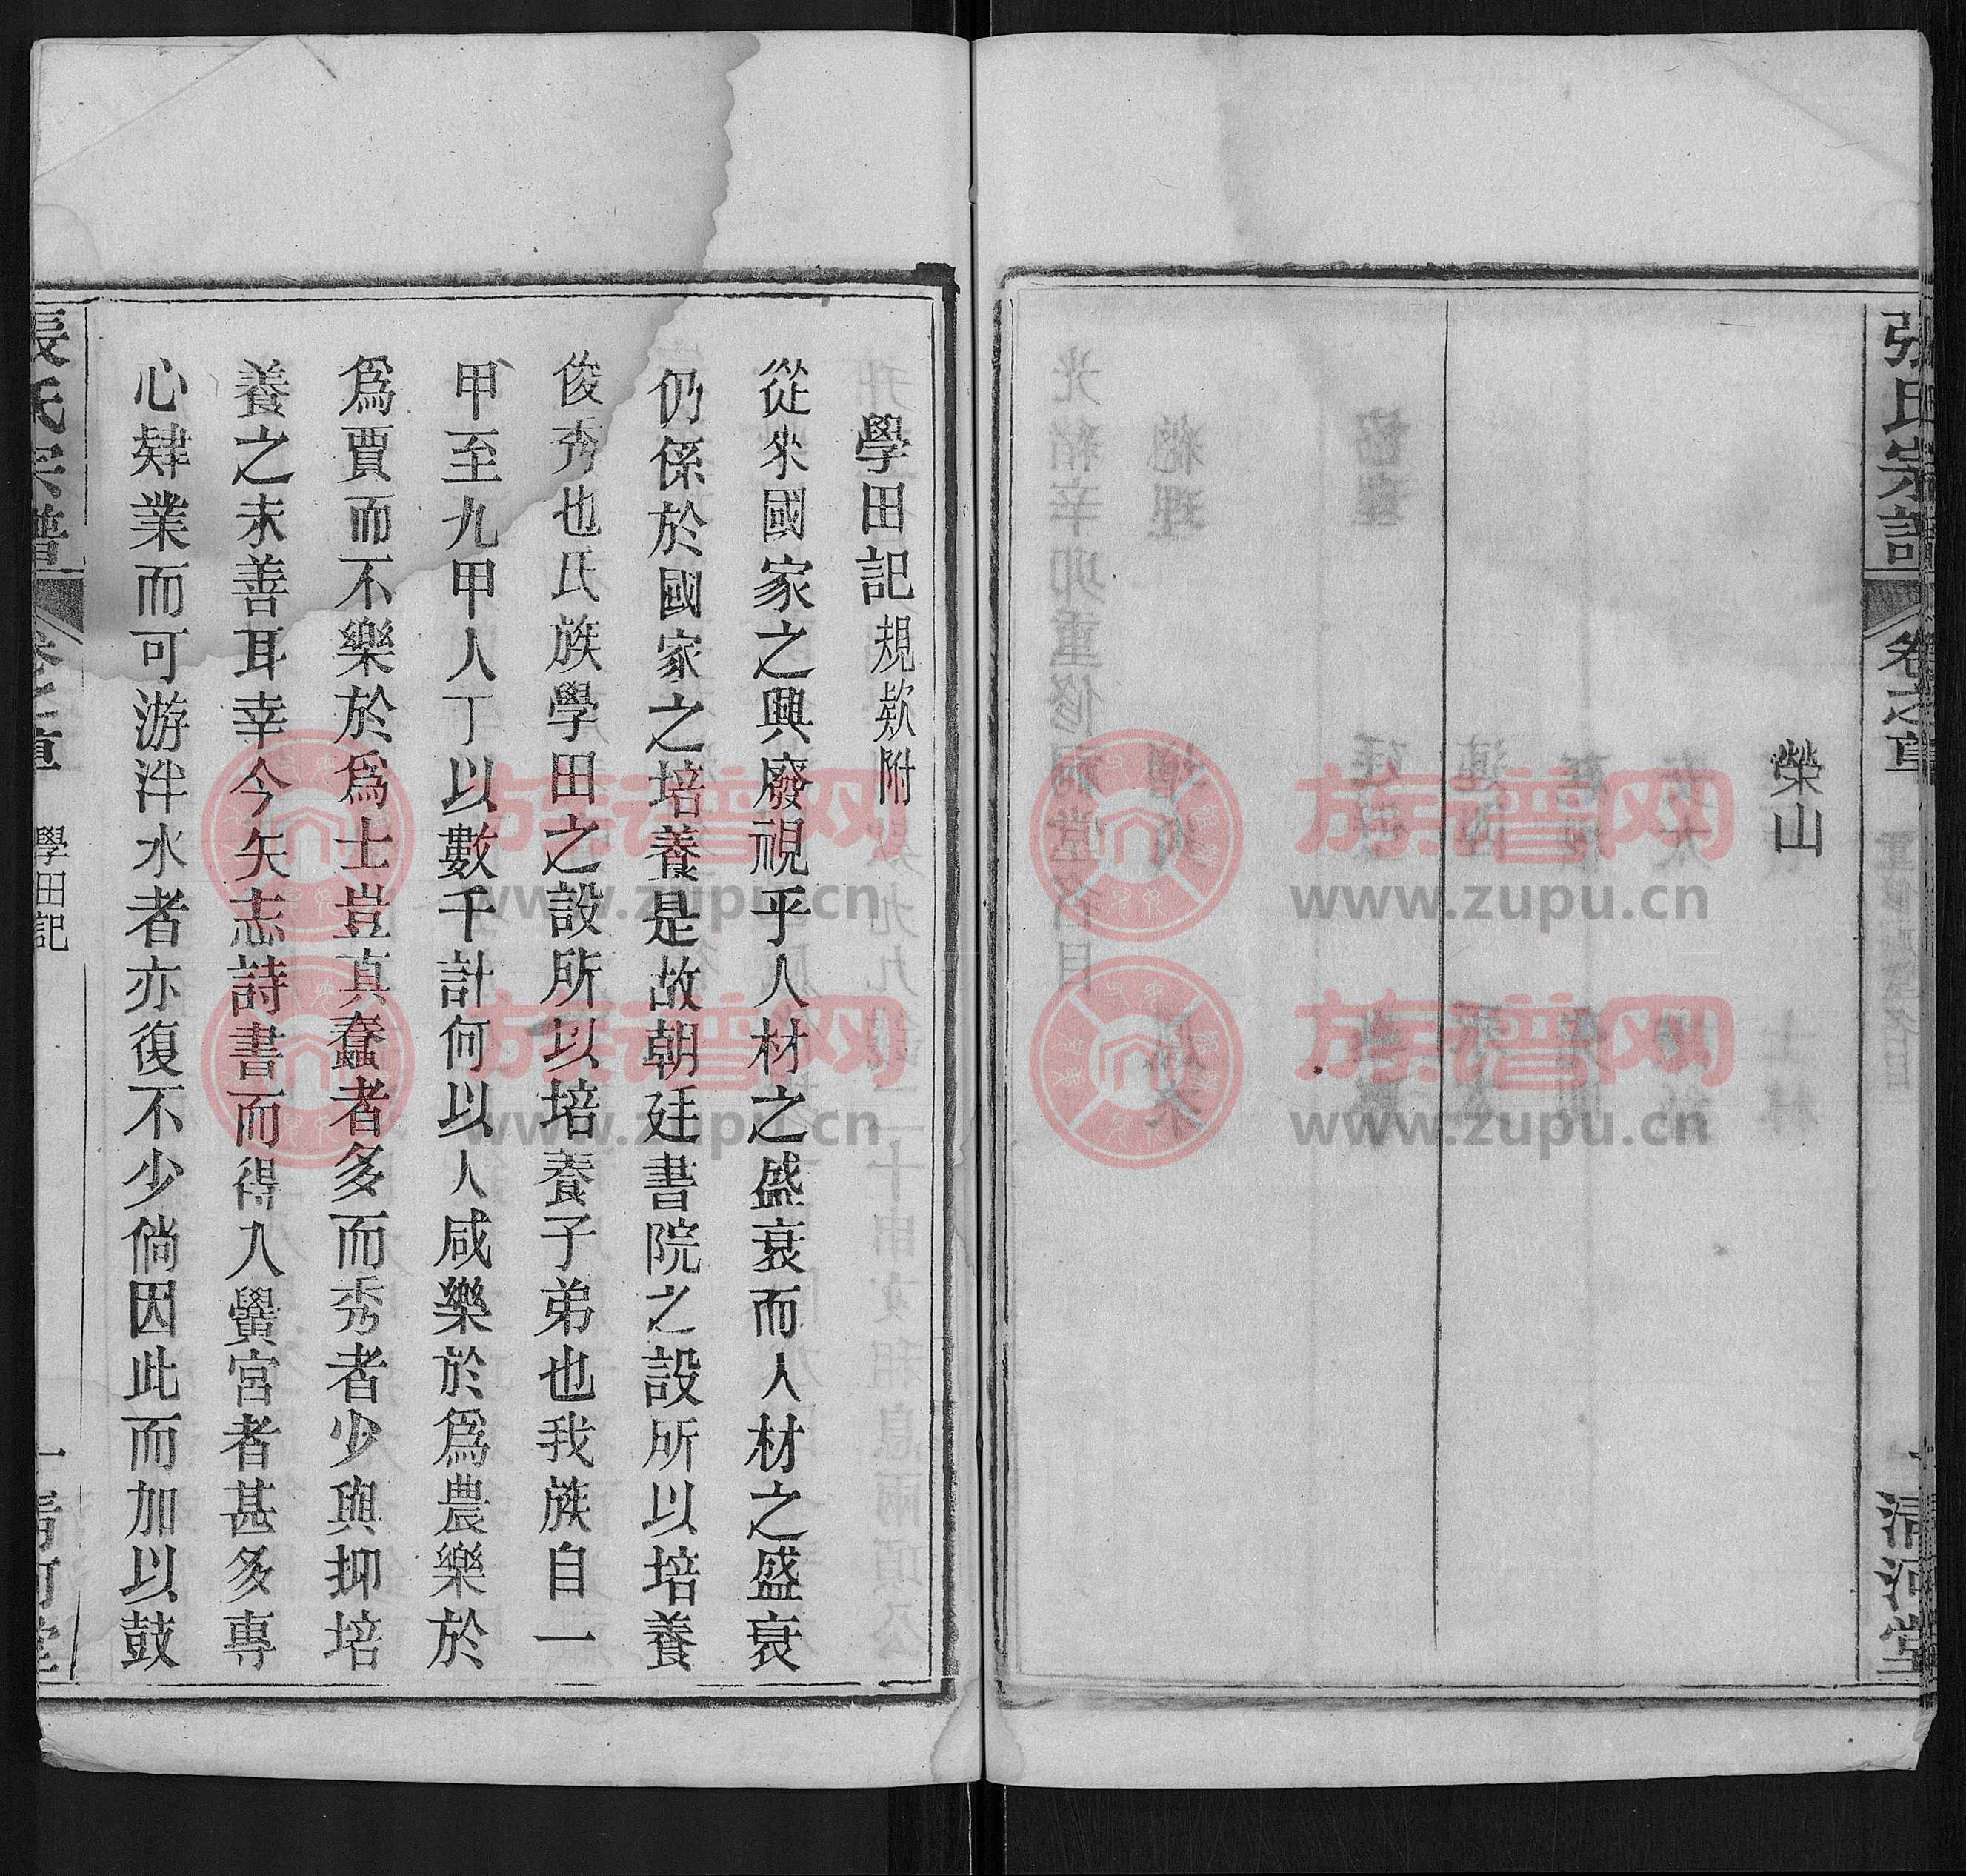 張氏宗譜
卷之首
清河堂
榮山
學田記 規欵附
從來國家之興廢視乎人材之盛衰而人材之盛衰
仍係於國家之培養是故朝廷書院之設所以培養
俊秀也氏族學田之設所以培養子弟也我族自一
甲至九甲人丁以數千計何以人咸樂於爲農樂於
爲賈而不樂於爲士豈真蠢者多而秀者少與抑培
養之未善耳幸今矢志詩書而得入黌宮者甚多專
心肄業而可游泮水者亦復不少倘因此而加以鼓
張氏宗譜
卷之首
學田記
一
清河堂
族谱网
www.zupu.cn
族谱网
www.zupu.cn
族谱网
www.zupu.cn
族谱网
www.zupu.cn